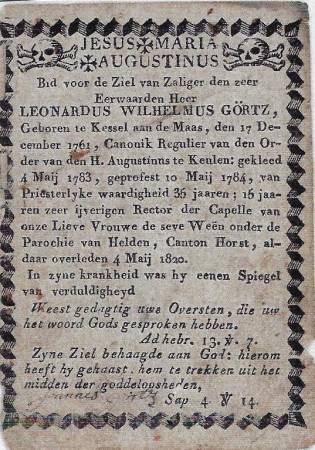 JESUS✠MARIA
✠AUGUSTINUS
Bid voor de Ziel van Zaliger den zeer
Eerwaarden Heer
LEONARDUS WILHELMUS GÖRTZ,
Geboren te Kessel aan de Maas, den 17 De-
cember 1761, Canonik Regulier van den Or-
der van den H. Augustinus te Keulen: gekleed
4 Maij 1783, geprofest 10 Maij 1784, van
Priesterlyke waardigheid 35 jaaren; 15 jaa-
ren zeer ijverigen Rector der Capelle van
onze Lieve Vrouwe de seve Weën onder de
Parochie van Helden, Canton Horst, al-
daar overleden 4 Maij 1820.
In zyne krankheid was hy eenen Spiegel
van verduldigheyd
Weest gedagtig uwe Oversten, die uw
het woord Gods gesproken hebben.
Ad hebr. 13. ℣. 7.
Zyne Ziel behaagde aan God: hierom
heeft hy gehaast hem te trekken uit het
midden der goddeloosheden,
Sap 4 ℣ 14.